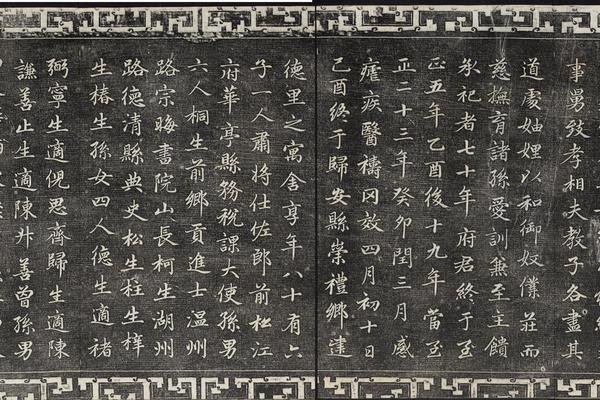 事舅致孝相夫教子各盡其
道處妯娌以和御奴僕莊而
慈撫育諸孫愛訓兼至主饋
承祀者七十年府君終于至
正五年乙酉後十九年當至
正二十三年癸卯閏三月感
瘧疾醫禱罔效四月初十日
己酉終于歸安縣崇禮鄉建
德里之寓舍享年八十有六
子一人肅將仕佐郎前松江
府華亭縣務稅課大使孫男
六人桐生前鄉貢進士溫州
路宗晦書院山長柯生湖州
路德清縣典史松生桂生梓
生椿生孫女四人德生適褚
弼寧生適倪思齊歸生適陳
謙善止生適陳升善曾孫男